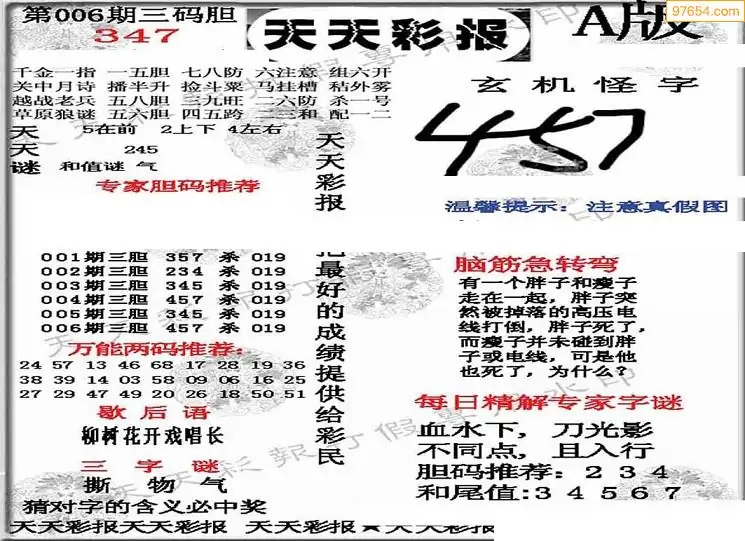 第006期三码胆
347
天天彩报
A版
97654.com
千金一指 一五胆 七八防 六注意 组六开
关中月诗 播半升 捡斗粟 马挂槽 秸外雾
越战老兵 五八胆 三九旺 二六防 杀一号
草原狼谜 五六胆 四五跨 二三和 配一二
天 5在前 2上下 4左右
天 245
谜 和值谜 气
玄机怪字
457
温馨提示：注意真假图
专家胆码推荐
001期三胆 357 杀 019
002期三胆 234 杀 019
003期三胆 345 杀 019
004期三胆 457 杀 019
005期三胆 345 杀 019
006期三胆 457 杀 019
万能两码推荐：
24 57 13 46 68 17 28 19 36
38 39 14 03 58 09 06 16 25
27 29 47 49 20 26 18 50 51
歇后语
柳树花开戏唱长
三字谜
撕物气
猜对字的含义必中奖
天天彩报
把最好的成绩提供给彩民
脑筋急转弯
有一个胖子和瘦子
走在一起，胖子突
然被掉落的高压电
线打倒，胖子死了，
而瘦子并未碰到胖
子或电线，可是他
也死了，为什么？
每日精解专家字谜
血水下，刀光影
不同点，且入行
胆码推荐：234
和尾值：34567
天天彩报天天彩报 天天彩报★天天彩报